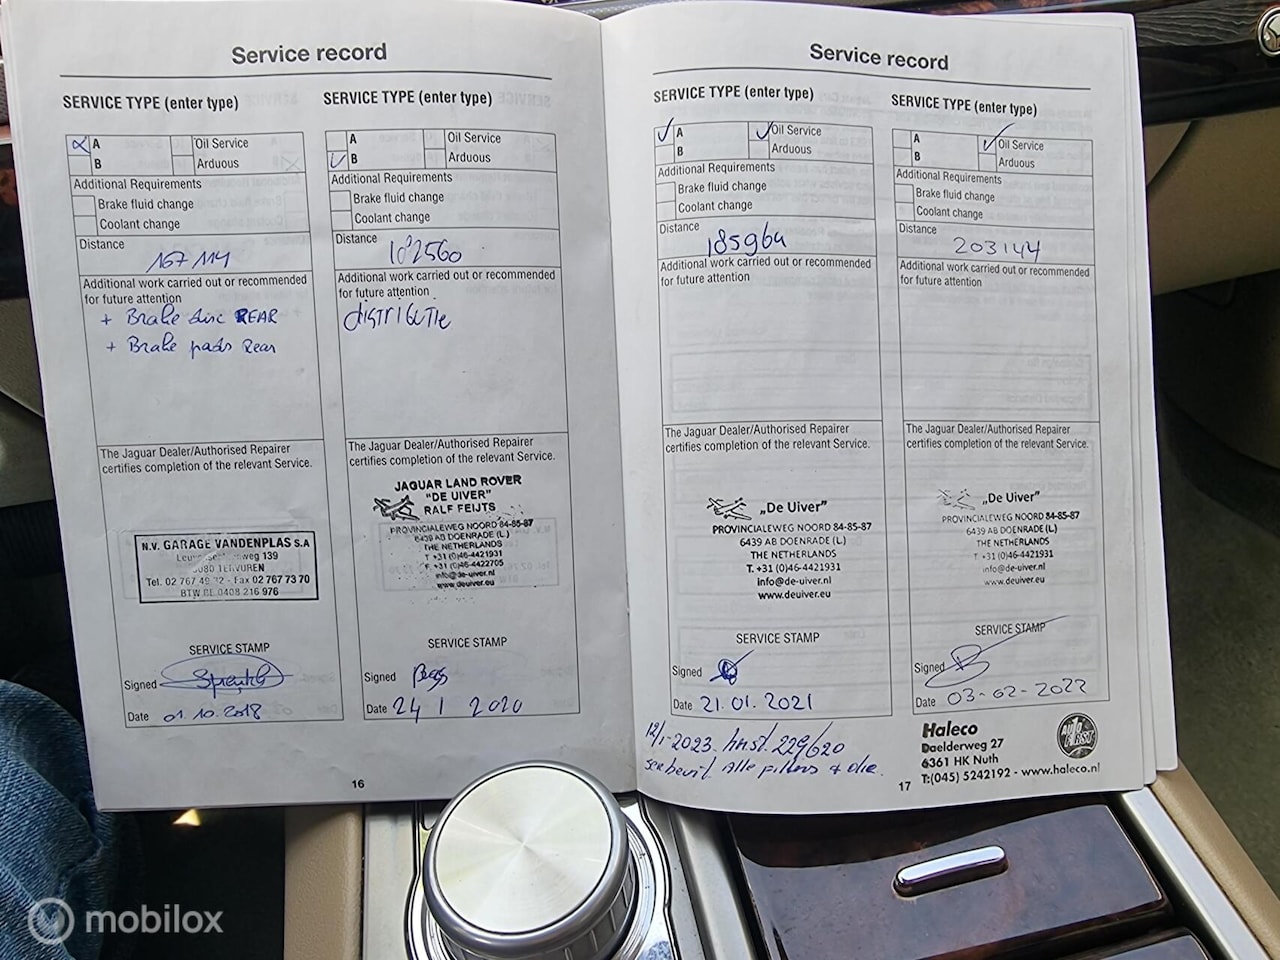 Service record
SERVICE TYPE (enter type)
A
Oil Service
B
Arduous
Additional Requirements
Brake fluid change
Coolant change
Distance
167 114
Additional work carried out or recommended
for future attention
+ Brake disc REAR
+ Brake pads Rear
The Jaguar Dealer/Authorised Repairer
certifies completion of the relevant Service.
N.V. GARAGE VANDENPLAS S.A
weg 139
3080 TERVUREN
Tel. 02 767 49 - Fax 02 767 73 70
BTW BE 0408 216 976
SERVICE STAMP
Signed
Date 01.10.2018
SERVICE TYPE (enter type)
A
Oil Service
B
Arduous
Additional Requirements
Brake fluid change
Coolant change
Distance
182560
Additional work carried out or recommended
for future attention
DISTRIBUTIE
The Jaguar Dealer/Authorised Repairer
certifies completion of the relevant Service.
JAGUAR LAND ROVER
"DE UIVER"
RALF FEIJTS
PROVINCIALEWEG NOORD 84-85-87
6439 AB DOENRADE (L)
THE NETHERLANDS
T +31 (0)46-4421931
F. +31 (0)46-4422705
info@de-uiver.nl
www.deuiver.eu
SERVICE STAMP
Signed
Date 24 1 2020
16
Service record
SERVICE TYPE (enter type)
A
Oil Service
B
Arduous
Additional Requirements
Brake fluid change
Coolant change
Distance
185964
Additional work carried out or recommended
for future attention
The Jaguar Dealer/Authorised Repairer
certifies completion of the relevant Service.
„De Uiver"
PROVINCIALEWEG NOORD 84-85-87
6439 AB DOENRADE (L)
THE NETHERLANDS
T. +31 (0)46-4421931
info@de-uiver.nl
www.deuiver.eu
SERVICE STAMP
Signed
Date 21.01.2021
SERVICE TYPE (enter type)
A
Oil Service
B
Arduous
Additional Requirements
Brake fluid change
Coolant change
Distance
203144
Additional work carried out or recommended
for future attention
The Jaguar Dealer/Authorised Repairer
certifies completion of the relevant Service.
„De Uiver"
PROVINCIALEWEG NOORD 84-85-87
6439 AB DOENRADE (L)
THE NETHERLANDS
T +31 (0)46-4421931
info@de-uiver.nl
www.deuiver.eu
SERVICE STAMP
Signed
Date 03-02-2022
12/1-2023. 229620
Alle filters + olie.
17
Haleco
Daelderweg 27
6361 HK Nuth
T:(045) 5242192 - www.haleco.nl
mobilox